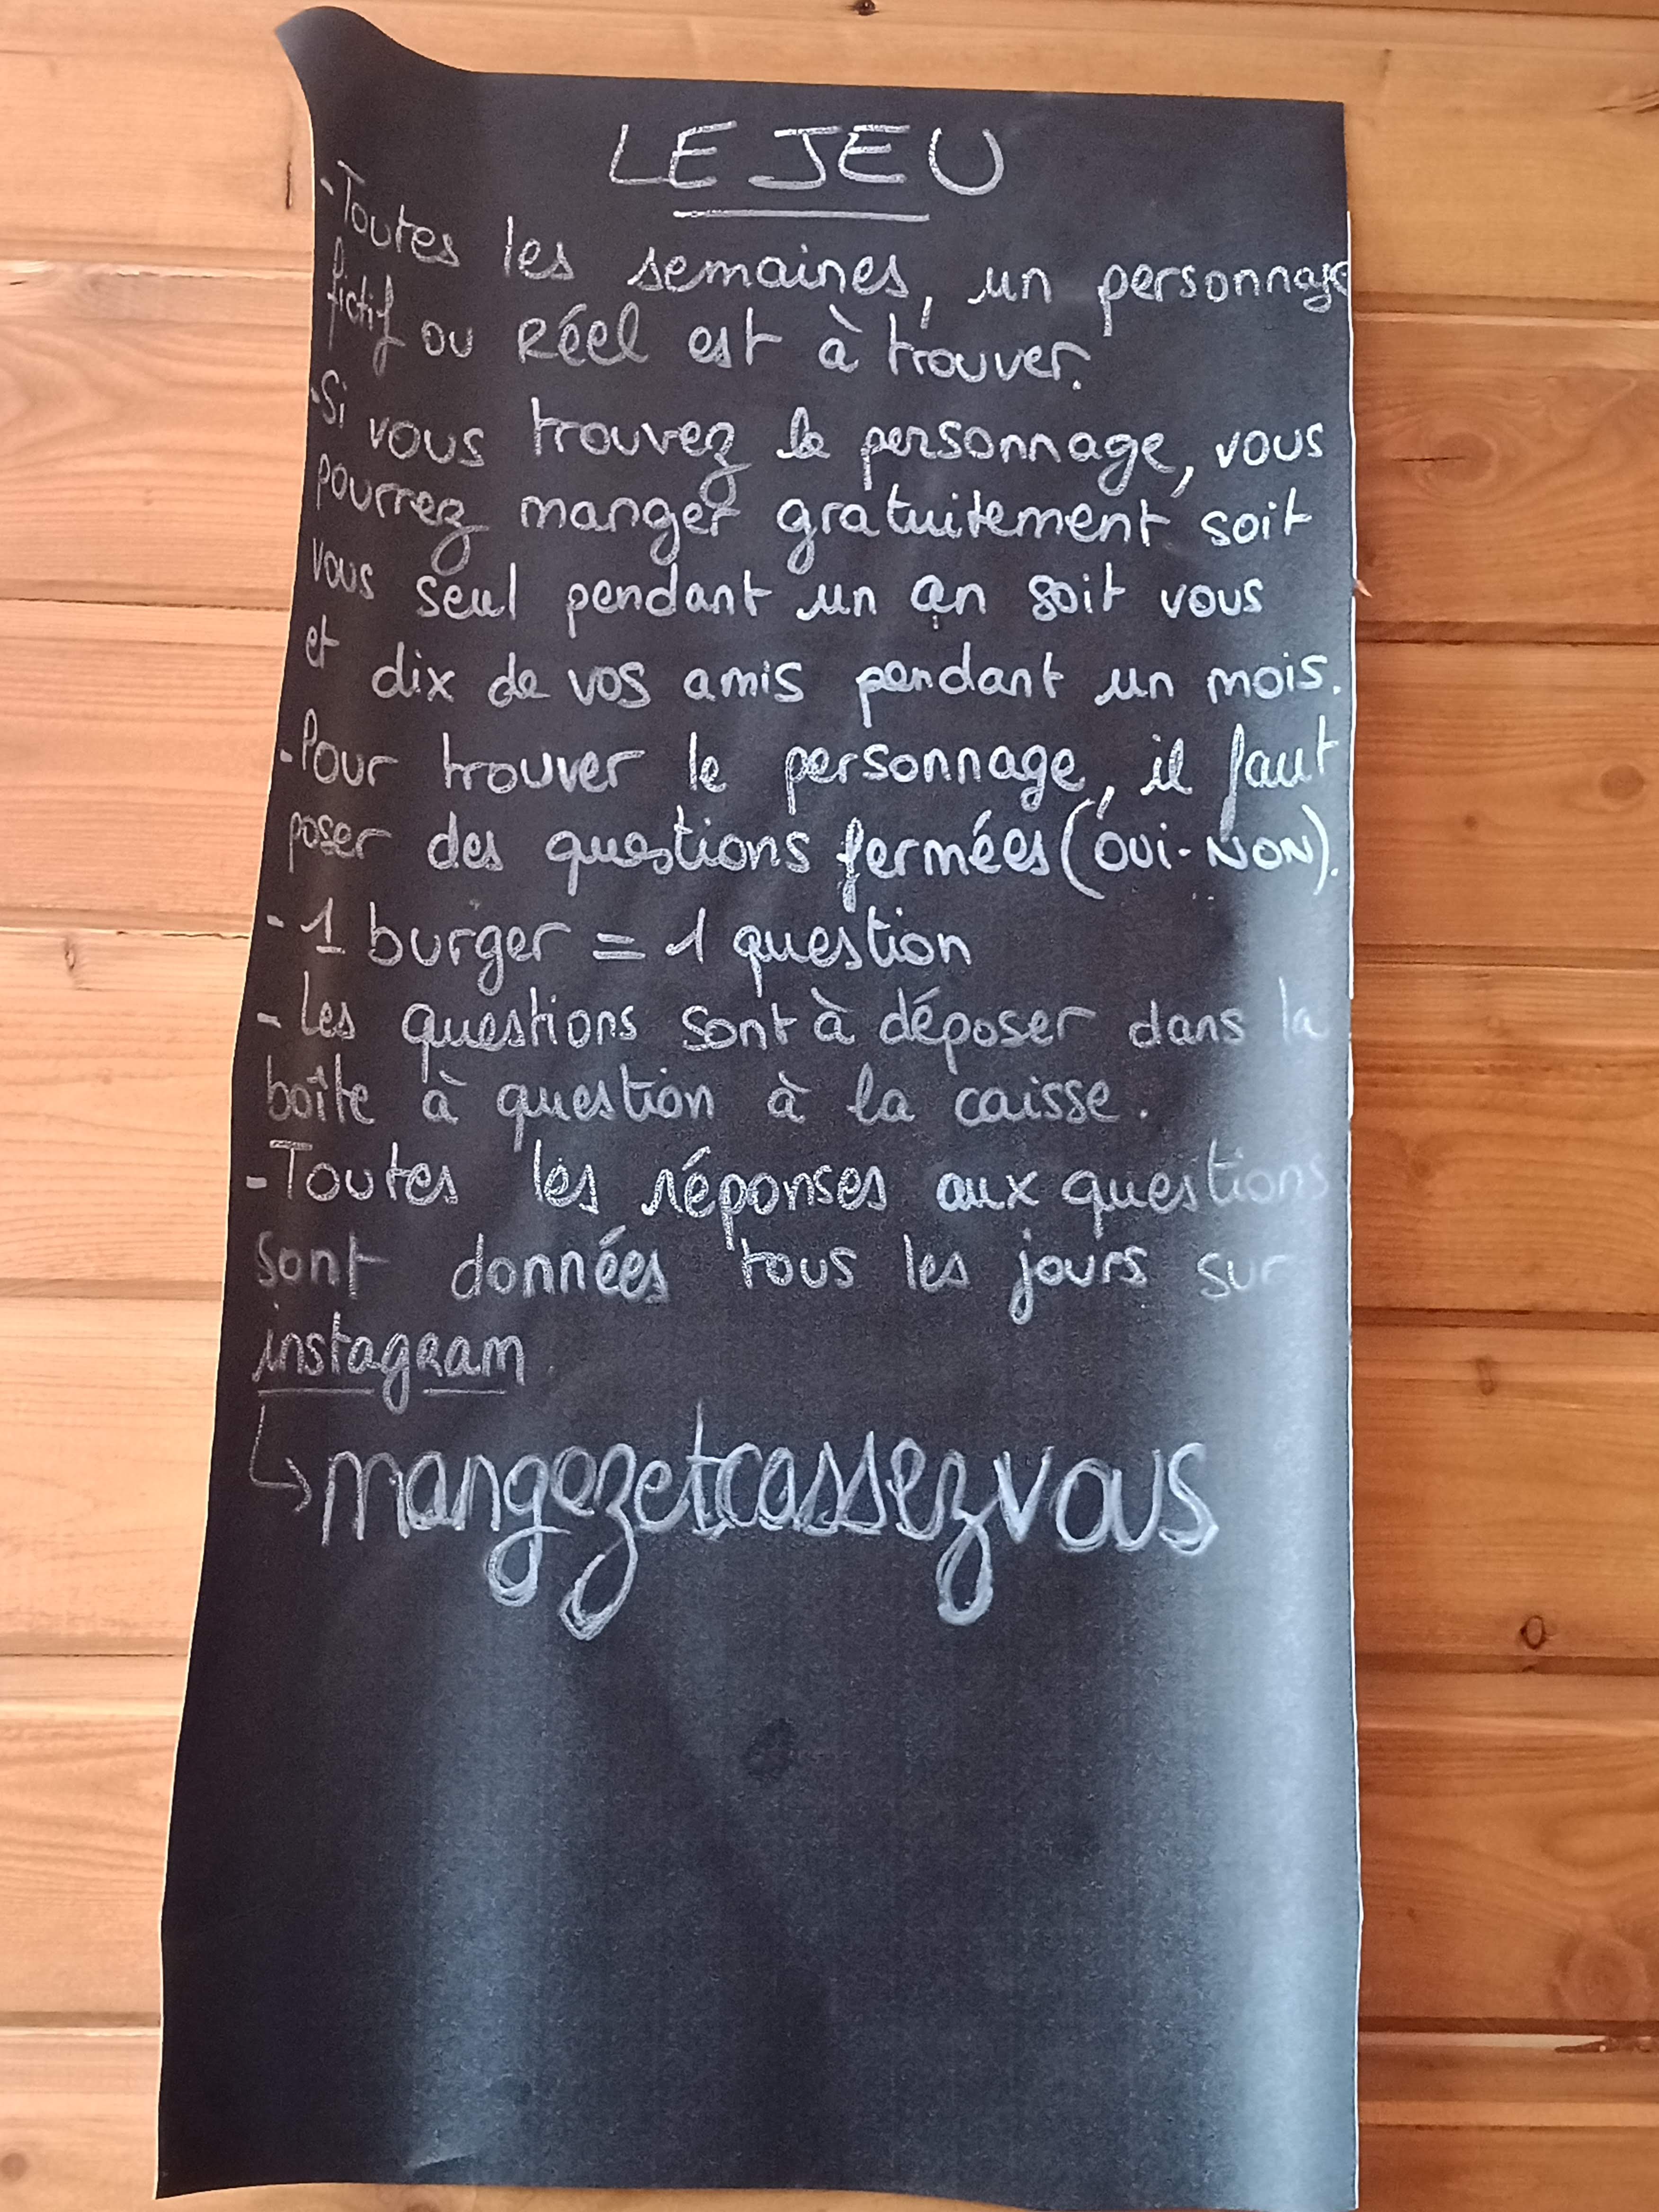 LE JEU
-Toutes les semaines, un personnage
fictif ou Réel est à trouver.
-Si vous trouvez le personnage, vous
pourrez manger gratuitement soit
vous seul pendant un an soit vous
et dix de vos amis pendant un mois.
-Pour trouver le personnage, il faut
poser des questions fermées (OUI-NON).
- 1 burger = 1 question
- Les questions sont à déposer dans la
boîte à question à la caisse.
-Toutes les réponses aux questions
sont données tous les jours sur
instagram
↳mangezetcassezvous